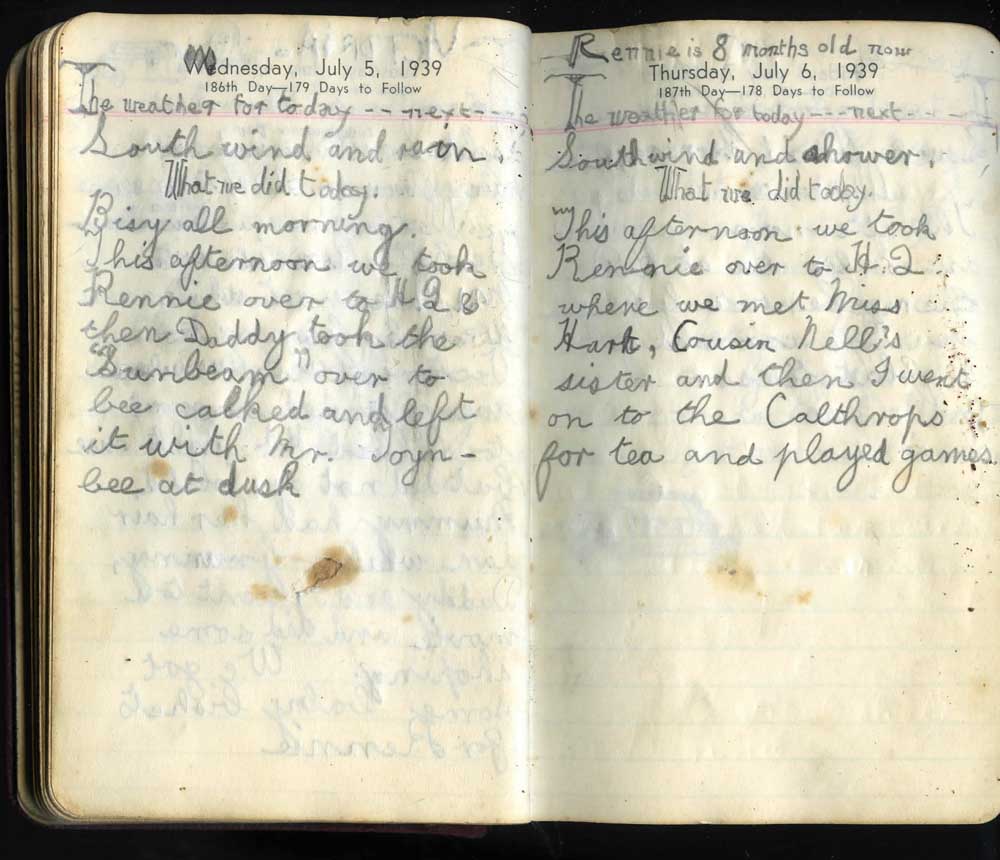 Wednesday, July 5, 1939
186th Day—179 Days to Follow
The weather for today -- next ---
South wind and rain.
What we did today.
Bisy all morning.
This afternoon we took
Rennie over to H.Q &
then Daddy took the
"Sunbeam" over to
bee calked and left
it with Mr. Toyn-
bee at dusk
Rennie is 8 months old now
Thursday, July 6, 1939
187th Day—178 Days to Follow
The weather for today --- next ---
South wind and shower.
What we did today.
This afternoon we took
Rennie over to H.Q
where we met Miss
Hart, Cousin Nell's
sister and then I went
on to the Calthrops
for tea and played games.